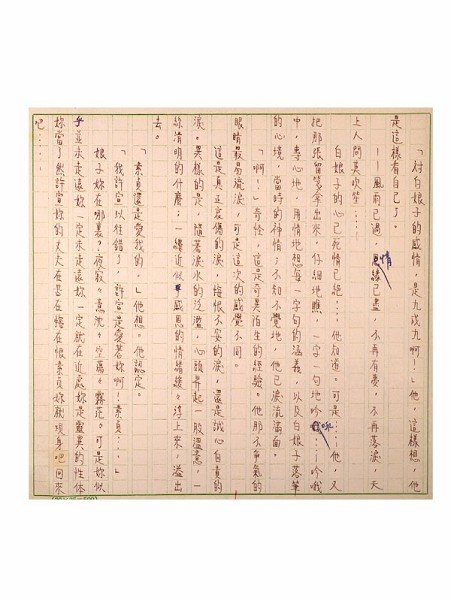 「對白娘子的感情,是九成九啊!」他,這樣想,他
是這樣看自己了。
—風雨已過,情緣已盡,不再有妻,不再落淚,天
上人間莫吹笙……
白娘子的心已死情已絕……他知道。可是……他,又
把那張留箋拿出來,仔細地瞧,一字一句地吟哦……吟哦
中,專心地,用情地想每一字句的涵義,以及白娘子落筆
的心境,當時的神情;不知不覺地,他已淚流滿面。
「啊!」奇怪,這是奇異陌生的經驗。他那不爭氣的
眼睛最易流淚,可是這次的感覺不同。
這是真正哀傷的淚、悔恨不安的淚,還是誠心自責的
淚。異樣的是,隨著淚水的泛濫,心頭昇起一股溫意,一
絲清明的什麼;一縷近似感恩的情緒緩緩浮上來,溢出
去。
「素貞還是愛我的。」他想。他認定。
「我許宣以往錯了,許宣是愛著妳啊!素貞……」
娘子妳在哪裏?夜寂。沈。空蕩。霧茫。可是妳似
乎並未走遠妳一定未走遠妳一定就在近處妳是靈異的性體
妳當了然許宣妳的丈夫在在悔在恨素貞妳就現身吧回來
吧……